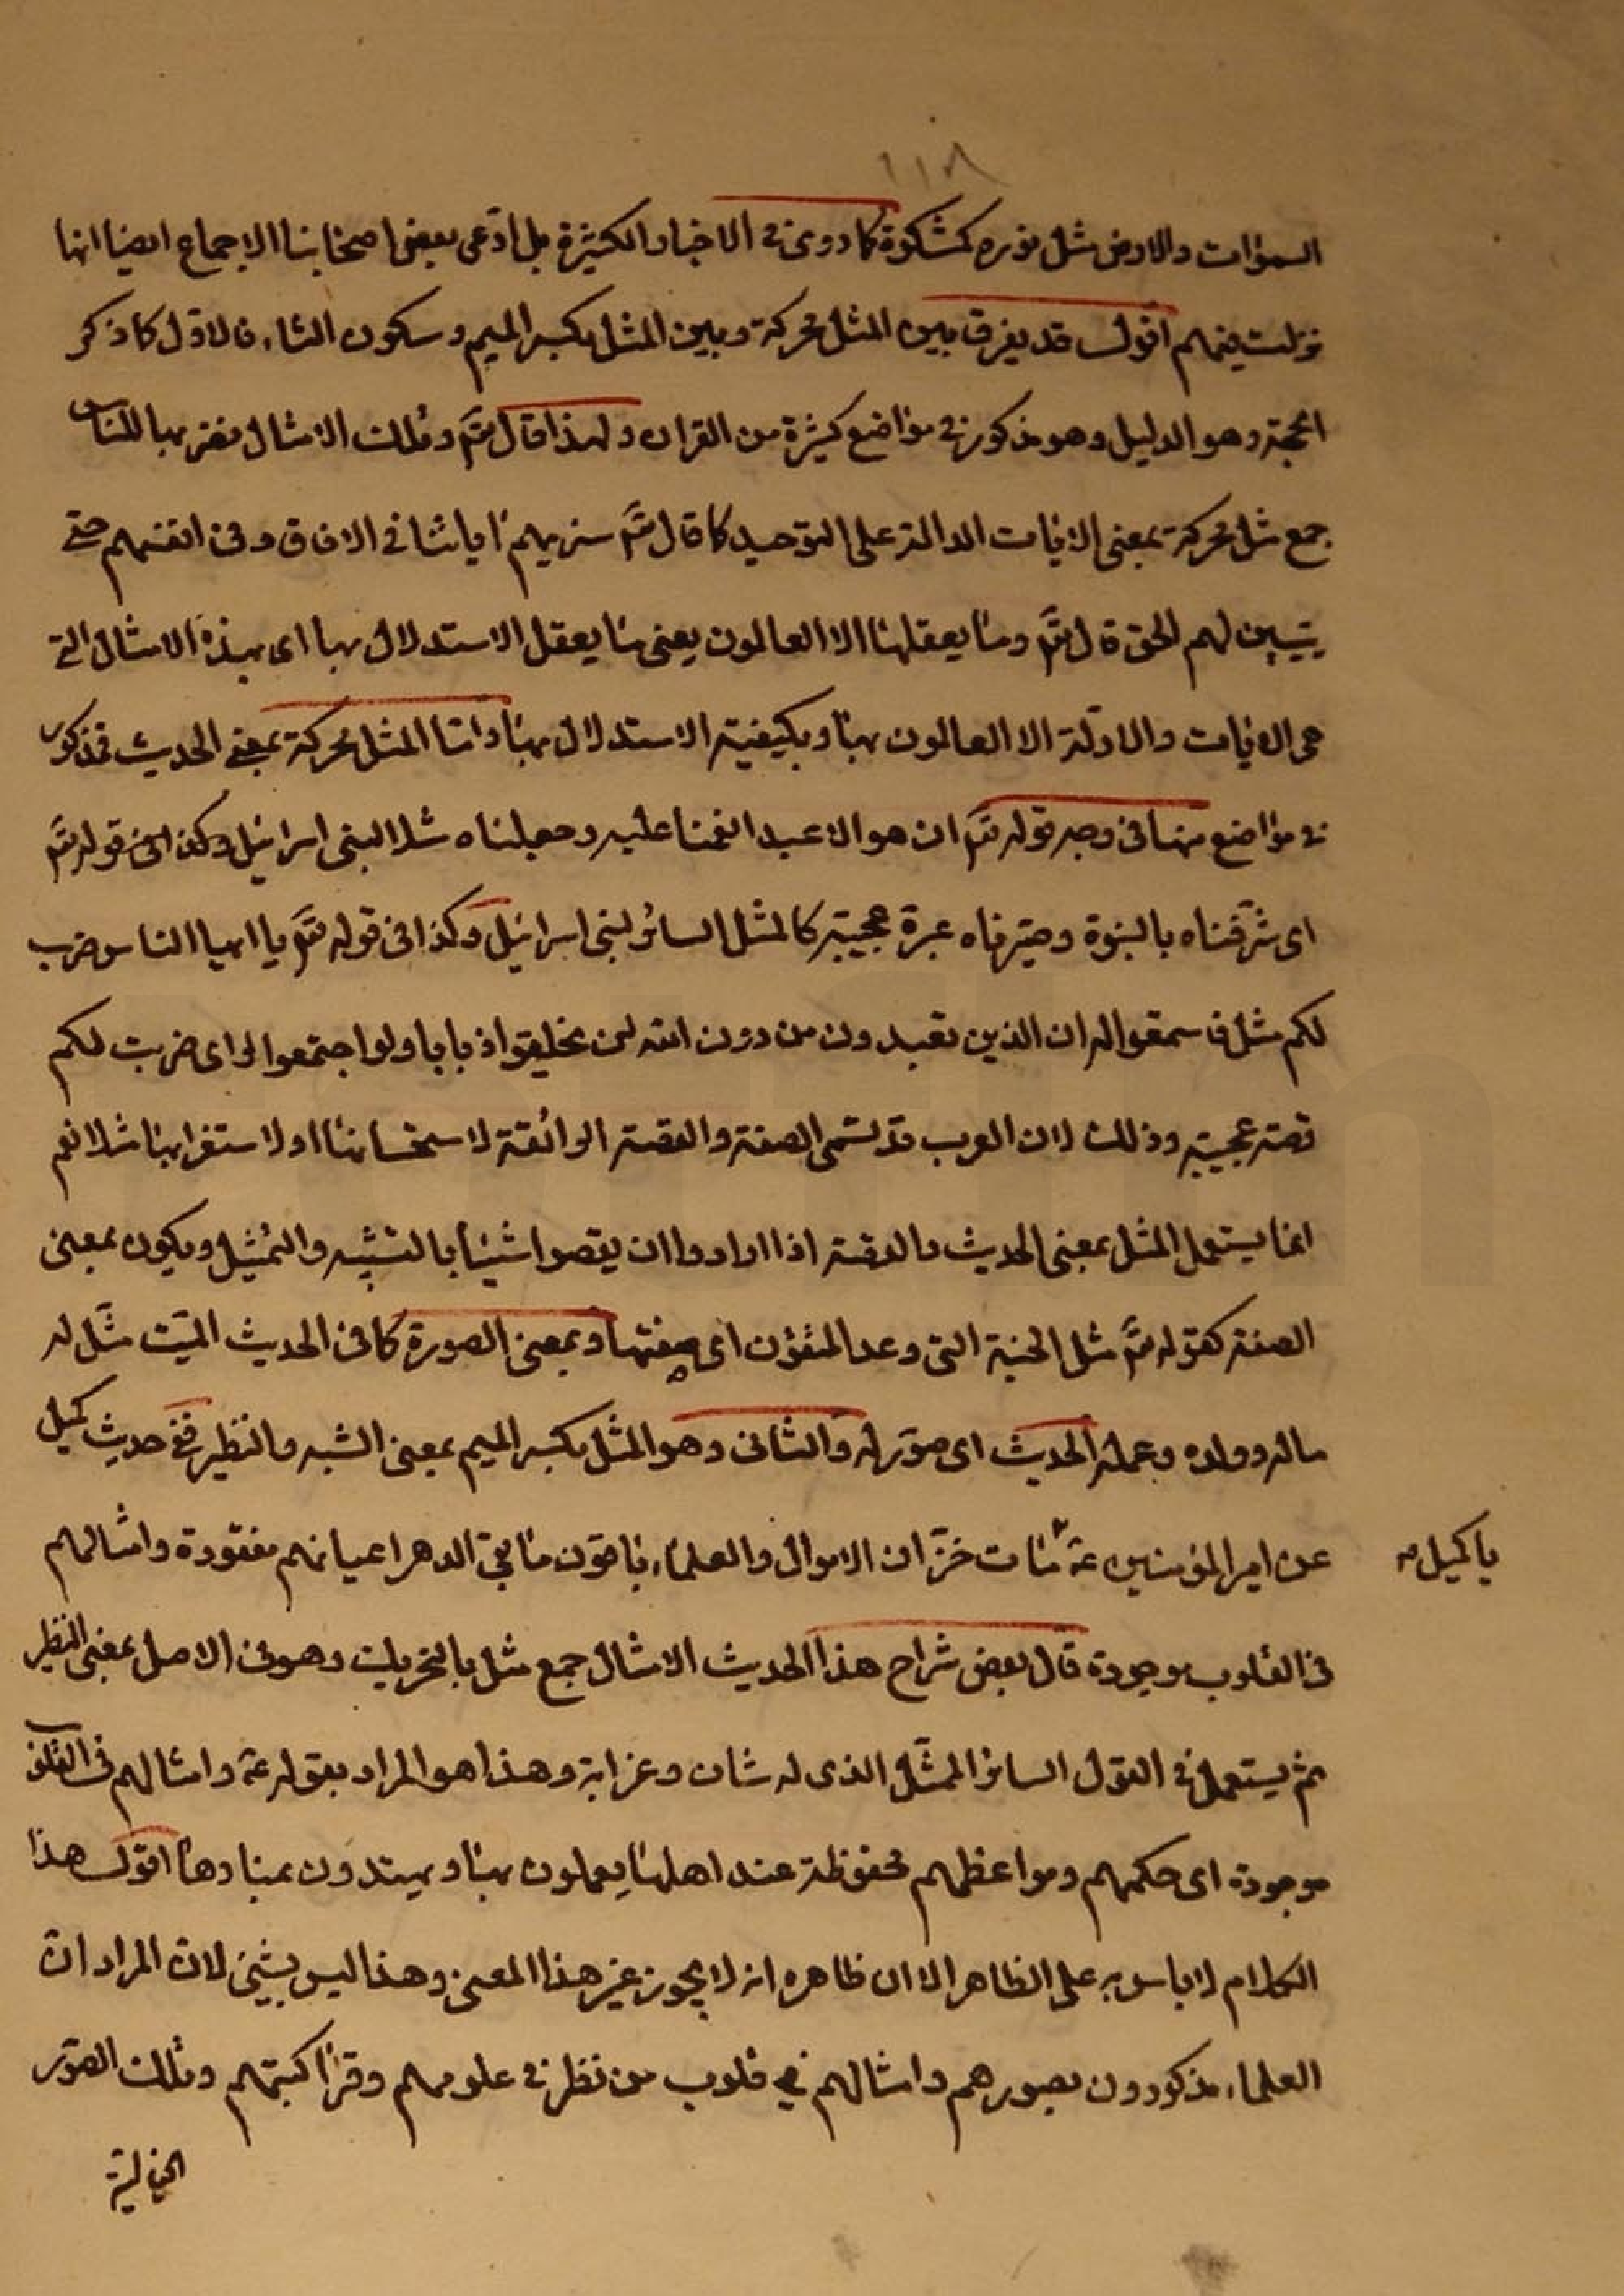 ١١٨
السموات والارض مثل نوره كمشكوة كما روى في الاخبار الكثيرة بل ادّعى بعض اصحابنا الاجماع ايضا انها
نزلت فيهم اقول قد يفرق بين المثل محركة وبين المثل بكسر الميم وسكون الثاء فالاوّل كما ذكر
الحجة وهو الدليل وهو مذكور في مواضع كثيرة من القران ولهذا قال تع وتلك الامثال نضربها للناس
جمع مثل محركة بمعنى الايات الدالة على التوحيد كما قال تع سنريهم اياتنا في الافاق وفي انفسهم حتى
يتبين لهم الحق قال تع وما يعقلها الا العالمون يعنى ما يعقل الاستدلال بها اى بهذه الامثال التى
هى الايات والادلّة الا العالمون بها وبكيفية الاستدلال بها وامّا المثل محركة بمعنى الحديث فمذكور
في مواضع منها في وجه قوله تع ان هو الا عبد انعمنا عليه وجعلناه مثلا لبنى اسرائيل وكذا في قوله تع
اى شرّفناه بالنبوة وصيّرناه عبرة عجيبة كالمثل السائر لبنى اسرائيل وكذا في قوله تع يا ايها الناس ضرب
لكم مثل فاسمعوا له ان الذين تعبدون من دون الله لن يخلقوا ذبابا ولو اجتمعوا له اى ضربت لكم
قصة عجيبة وذلك لان العرب قد تسمى الصفة والقصة الرائقة لاستحسانها او لاستغرابها مثلا نعم
انما يستعمل المثل بمعنى الحديث والقصة اذا ارادوا ان يقصوا شيئا بالتشبيه والتمثيل ويكون بمعنى
الصفة كقوله تع مثل الجنة التى وعد المتقون اى صفتها وبمعنى الصورة كما في الحديث الميّت مثّل له
ماله وولده وعمله الحديث اى صوّر له والثانى وهو المثل بكسر الميم بمعنى الشبه والنظير ففى حديث كميل
عن امير المؤمنين عه مات خزّان الاموال والعلماء باقون ما بقى الدهر اعيانهم مفقودة وامثالهم
يا كميل صه
في القلوب موجودة قال بعض شراح هذا الحديث الامثال جمع مثل بالتحريك وهو في الاصل بمعنى النظير
ثم يستعمل في القول السائر الممثّل الذى له شان وغرابة وهذا هو المراد بقوله عه وامثالهم في القلوب
موجودة اى حكمهم ومواعظهم محفوظة عند اهلها يعملون بها ويهتدون بمنارها اقول هذا
الكلام لا باس به على الظاهر الا ان ظاهره انه لا يجوز غير هذا المعنى وهذا ليس بشىء لان المراد ان
العلماء مذكورون بصورهم وامثالهم في قلوب من نظر في علومهم وقرا كتبهم وتلك الصور
الخيالية